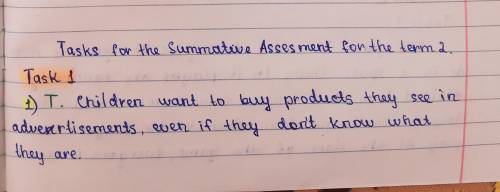 Tasks for the Summative Assesment for the term 2.
Task 1
1) T. Children want to buy products they see in
advercrtisements, even if they don't know what
they are.